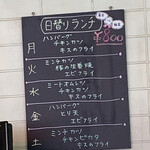 日替りランチ
¥800
月
ハンバーグ
チキンカツ
キスのフライ
火
ミンチカツ
豚の生姜焼
エビフライ
水
ミートオムレツ
チキンカツ
キスのフライ
金
ハンバーグ
とり天
エビフライ
土
ミンチカツ
チキンピカタ
キスのフライ